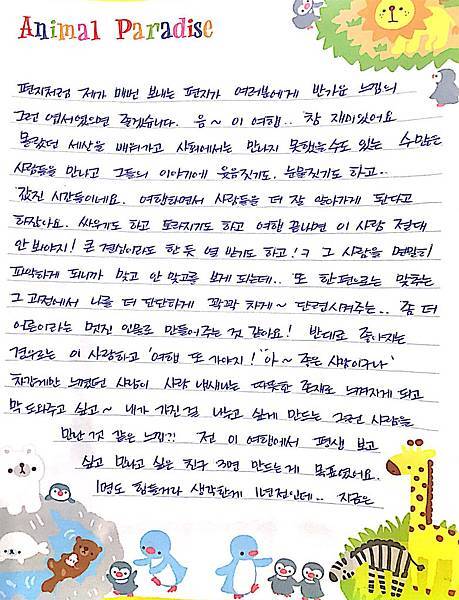 Animal Paradise
편지처럼 제가 매번 보내는 편지가 여러분에게 반가운 느낌의
그런 엽서였으면 좋겠습니다. 음~ 이 여행.. 참 재미있어요
몰랐던 세상을 배워가고 사회에서는 만나지 못했을수도 있는 수많은
사람들을 만나고 그들의 이야기에 웃음짓기도. 눈물짓기도 하고..
값진 시간들이네요. 여행하면서 사람들을 더 잘 알아가게 된다고
하잖아요. 싸우기도 하고 토라지기도 하고 여행 끝나면 이 사람 절대
안 봐야지! 큰 결심이라도 한 듯 열 받기도 하고!ㅋ 그 사람을 면밀히
파악하게 되니까 맞고 안 맞고를 보게 되는데.. 또 한편으로는 맞추는
그 과정에서 나를 더 단단하게 꽉꽉 차게~ 단련시켜주는.. 좀 더
어른이라는 멋진 인물로 만들어주는 것 같아요! 반대로 좋아지는
경우로는 이 사람하고 '여행 또 가야지!' '아~ 좋은 사람이구나'
차갑게만 느꼈던 사람이 사람 냄새나는 따뜻한 존재로 느껴지게 되고
막 도와주고 싶고~ 내가 가진걸 나누고 싶게 만드는 그런 사람을
만난 것 같은 느낌?! 전 이 여행에서 평생 보고
싶고 만나고 싶은 친구 3명 만드는게 목표였어요.
1명도 힘들거라 생각한게 1년전인데.. 지금은